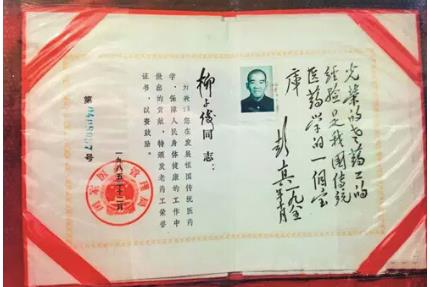 光荣的老药工的
经验是我国传统
医药学的一个宝
库
彭真
一九八五年
同志：
您在发展祖国传统医药
学、保障人民身体健康的工作中
做出的贡献，特颁发老药工荣誉
证书，以资鼓励。
第 号
一九八五年十二月
国家医药管理局